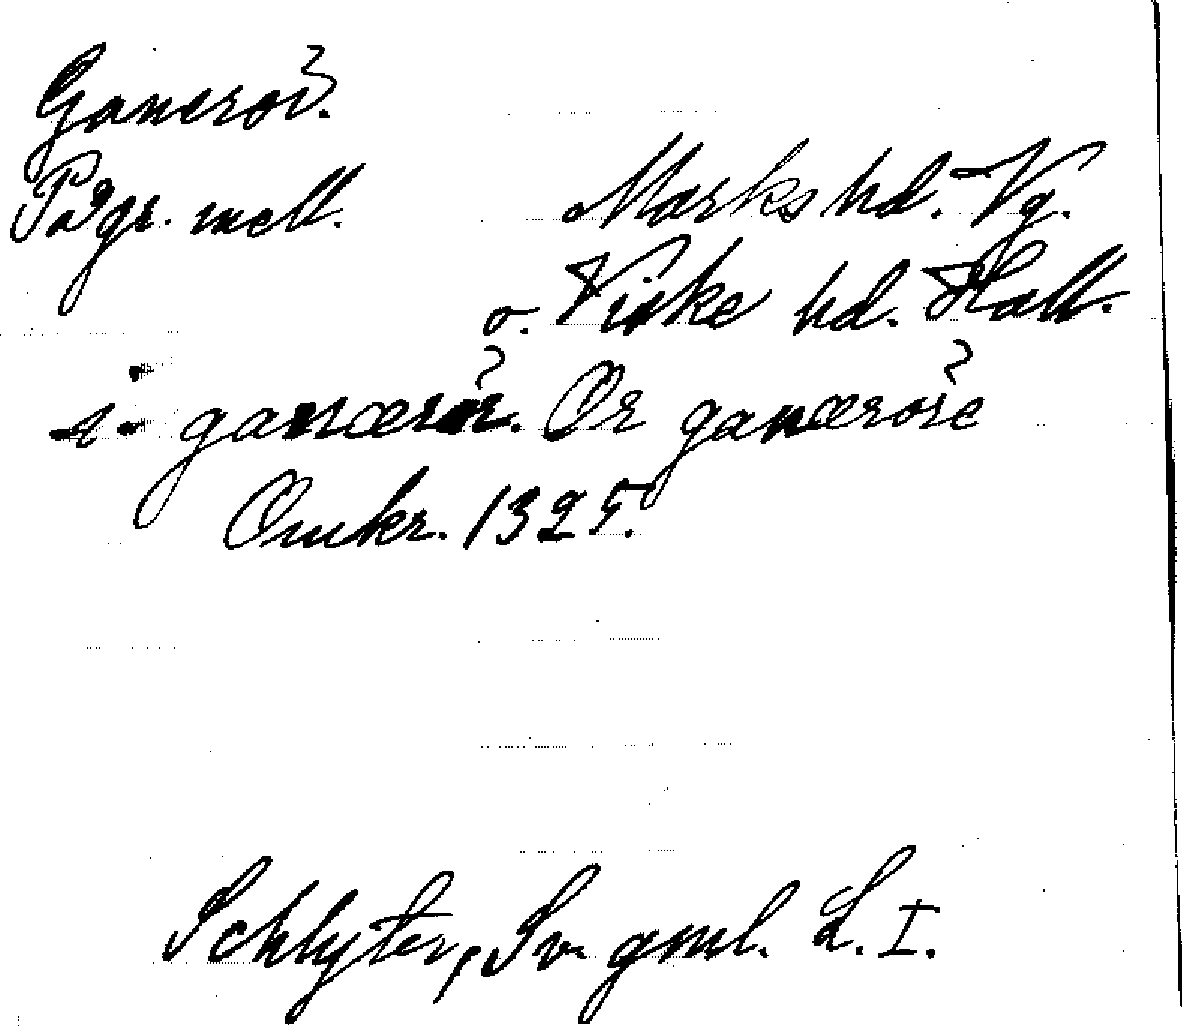 Ganerör.
På gr. mell. Marks hd. Vg.
o. Viske hd. Hall.
i ganærör. Or ganæröre
Omkr. 1325.
Schlyter, Sv. gml. L. I.